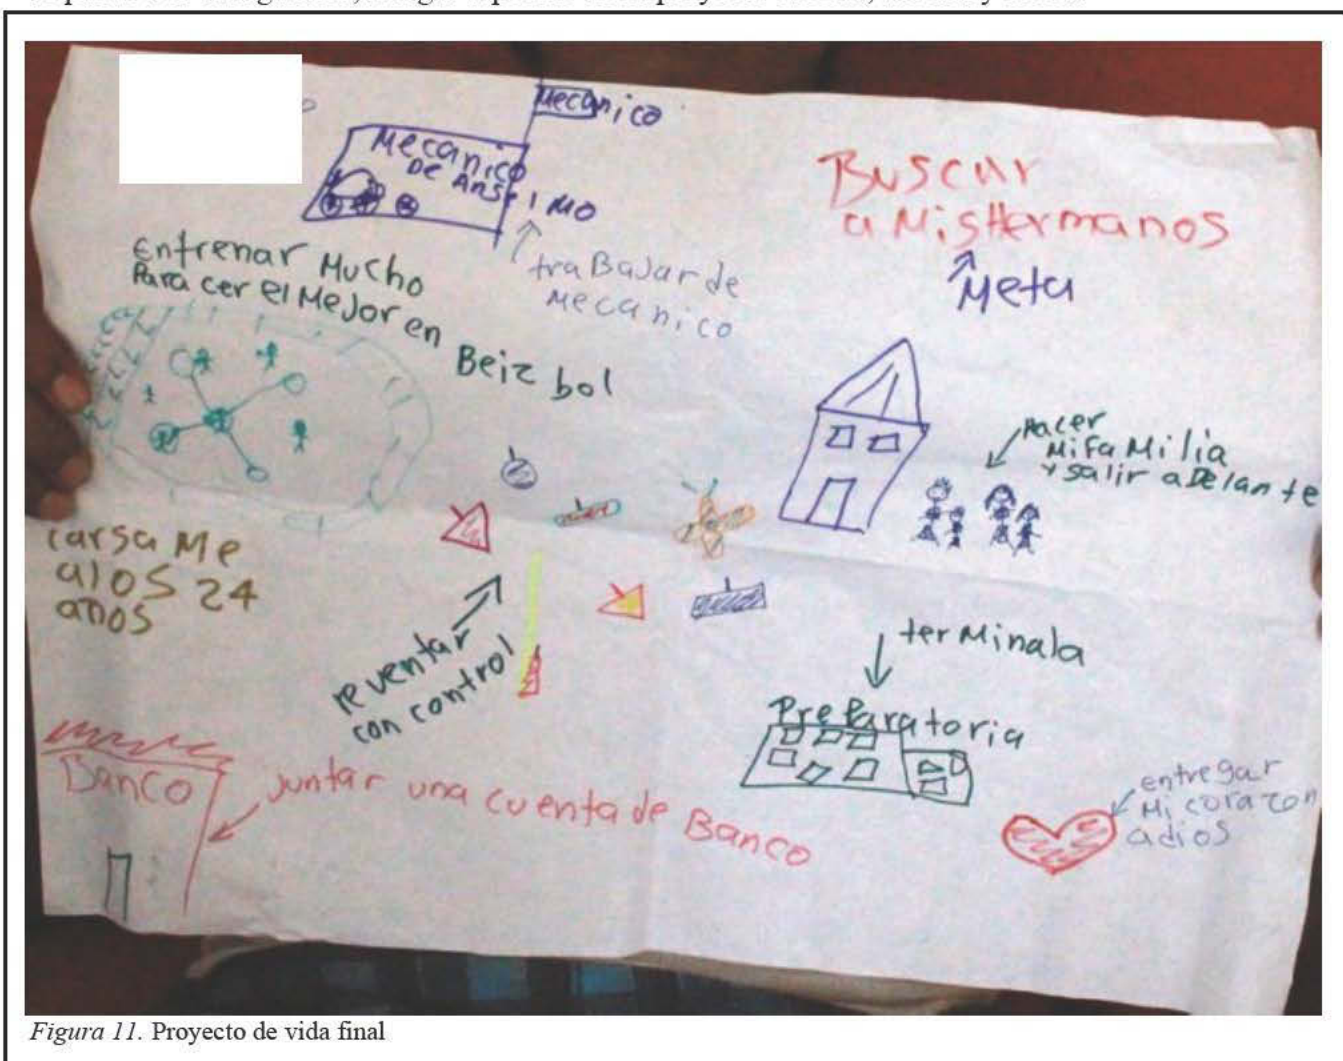 Mecanico
Mecanico
De Anselmo
traBaJar de
Mecanico
Buscar
a MisHermanos
Meta
Entrenar Mucho
Para cer el MeJor en
Beiz bol
Hacer
MifaMilia
y salir aDelante
carsaMe
alos 24
años
reventar
con control
terMinala
PrePAratoria
Banco
Juntar una cuenta de Banco
entregar
Mi corazon
adios
Figura 11. Proyecto de vida final